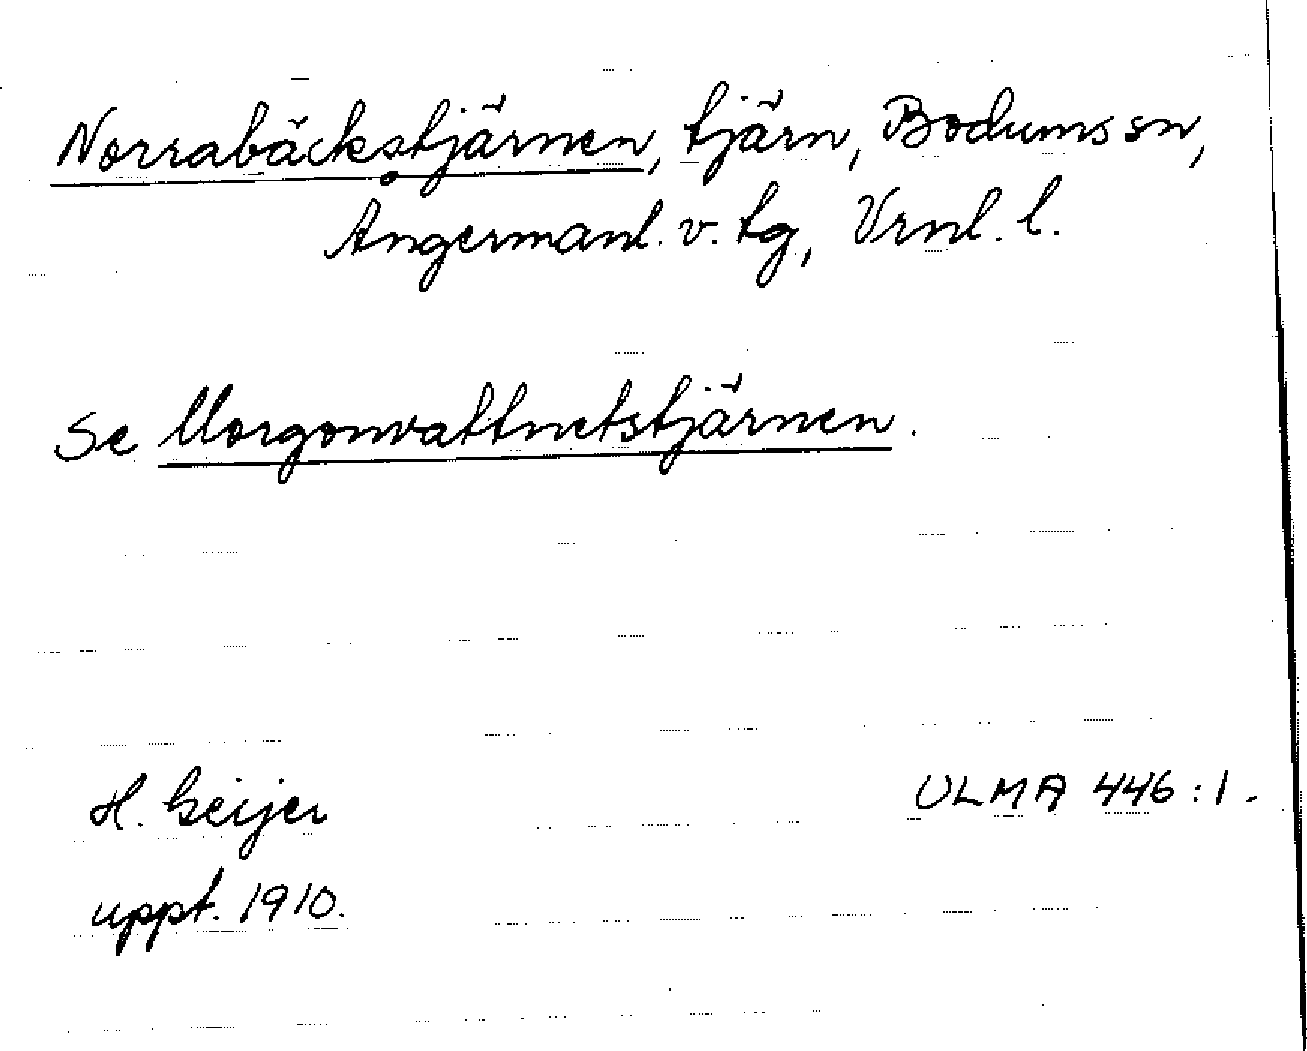 Norrabäckstjärnen, tjärn, Bodums sn,
Ångermanl. v. tg, Vrnl. l.
Se Morgonvattnetstjärnen.
H. Geijer
ULMA 446:1.
uppt. 1910.